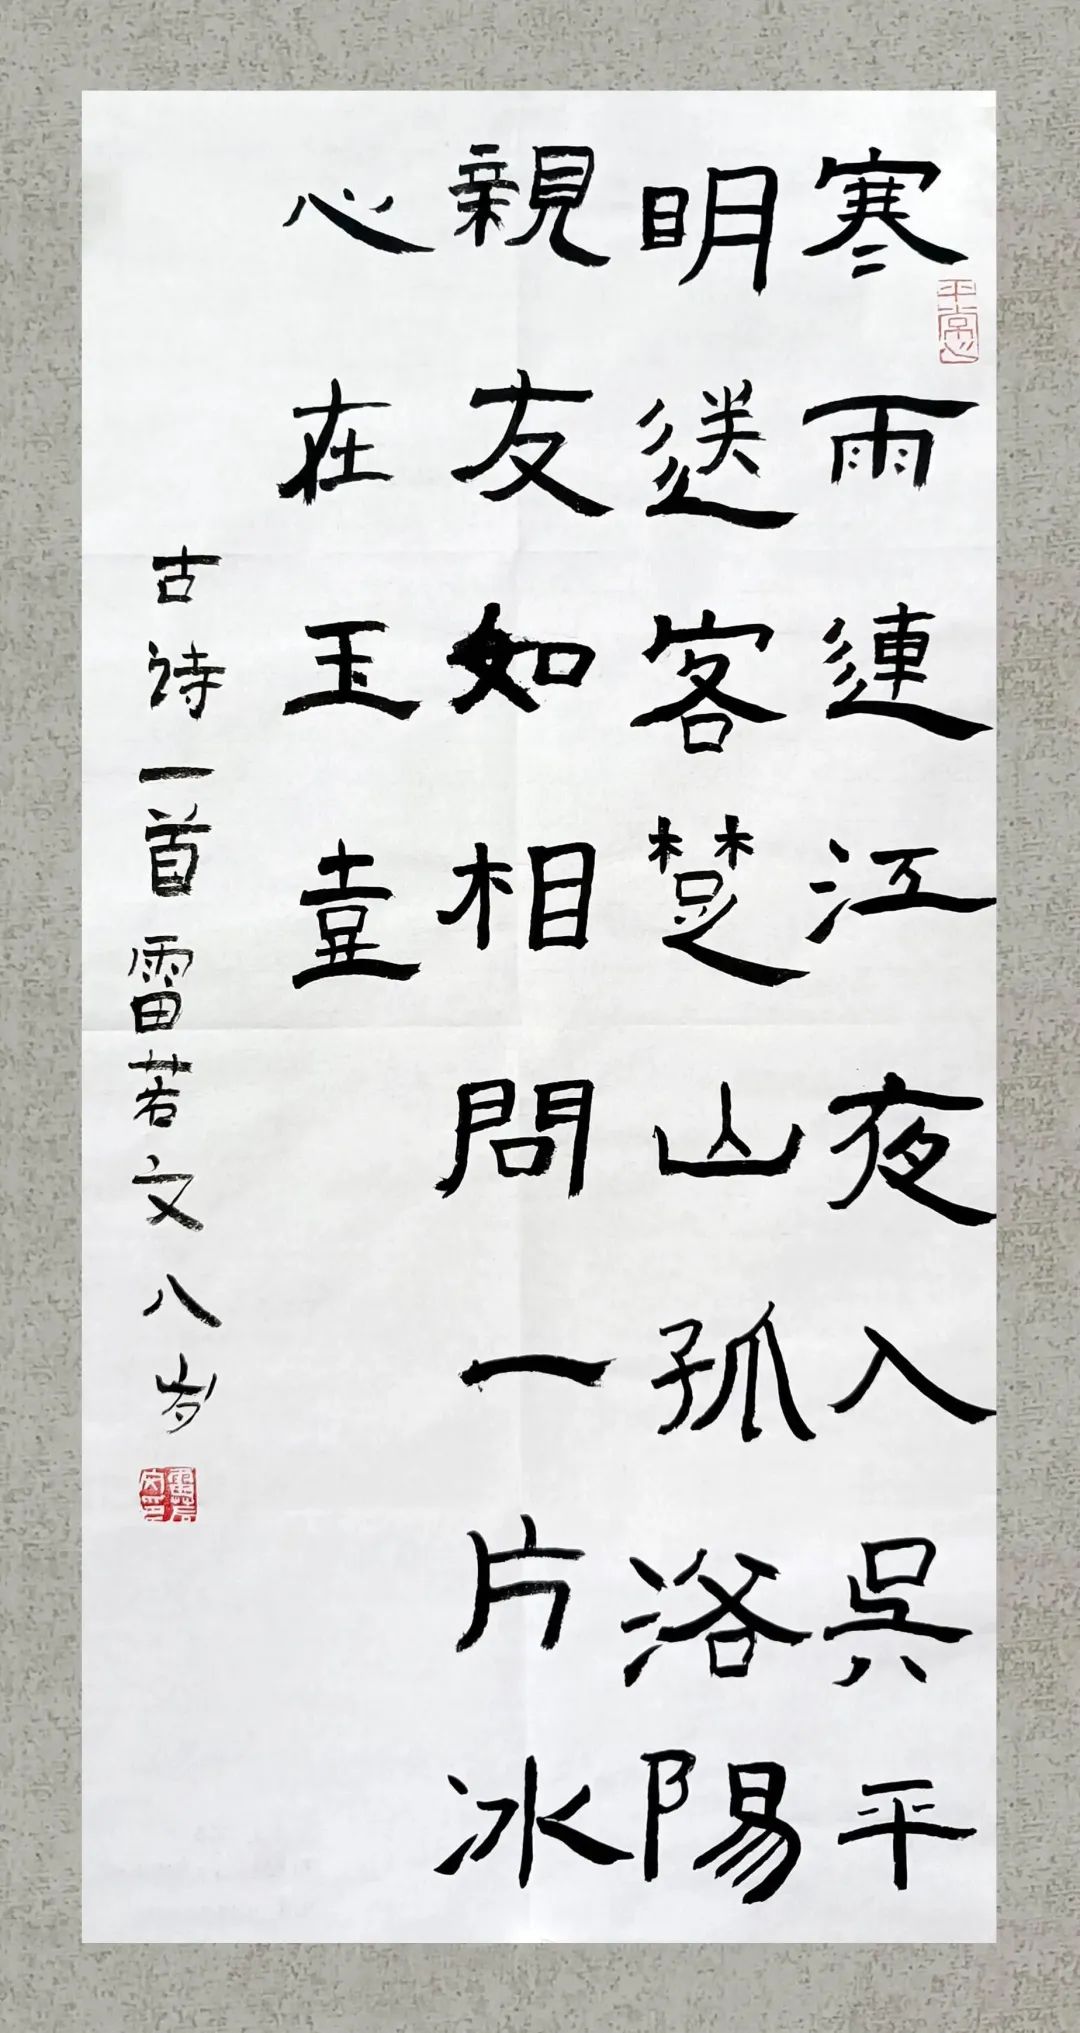 寒雨連江夜入吳平
明送客楚山孤洛陽
親友如相問一片冰
心在玉壺
古诗一首雷若文八岁
平常心
雷若文印